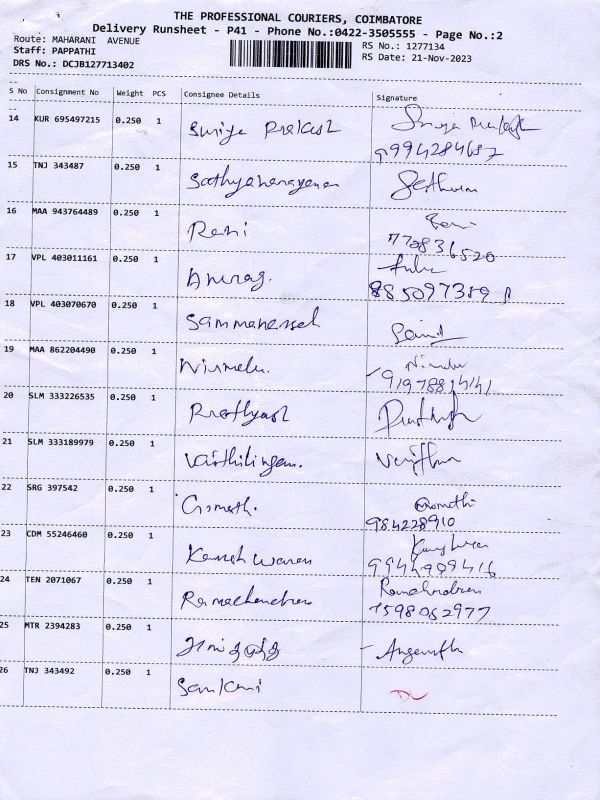 THE PROFESSIONAL COURIERS, COIMBATORE
Delivery Runsheet - P41 - Phone No.:0422-3505555 - Page No.:2
Route: MAHARANI AVENUE
Staff: PAPPATHI
DRS No.: DCJB127713402
RS No.: 1277134
RS Date: 21-Nov-2023
S No Consignment No Weight PCS Consignee Details Signature
14 KUR 695497215 0.250 1 Suriya Prakash
15 TNJ 343487 0.250 1 Sathyanarayanan
16 MAA 943764489 0.250 1 Rani
770836520
17 VPL 403011161 0.250 1 Anurag.
18 VPL 403070670 0.250 1
19 MAA 862204490 0.250 1 Nirmala.
20 SLM 333226535 0.250 1 Prathyash
21 SLM 333189979 0.250 1 Vaithilingam.
22 SRG 397542 0.250 1 Gomath. Gomathi
984228910
23 CDM 55246460 0.250 1
9944909416
24 TEN 2071067 0.250 1 Ramachandran Ramachandran
7598052977
25 MTR 2394283 0.250 1
26 TNJ 343492 0.250 1 DL